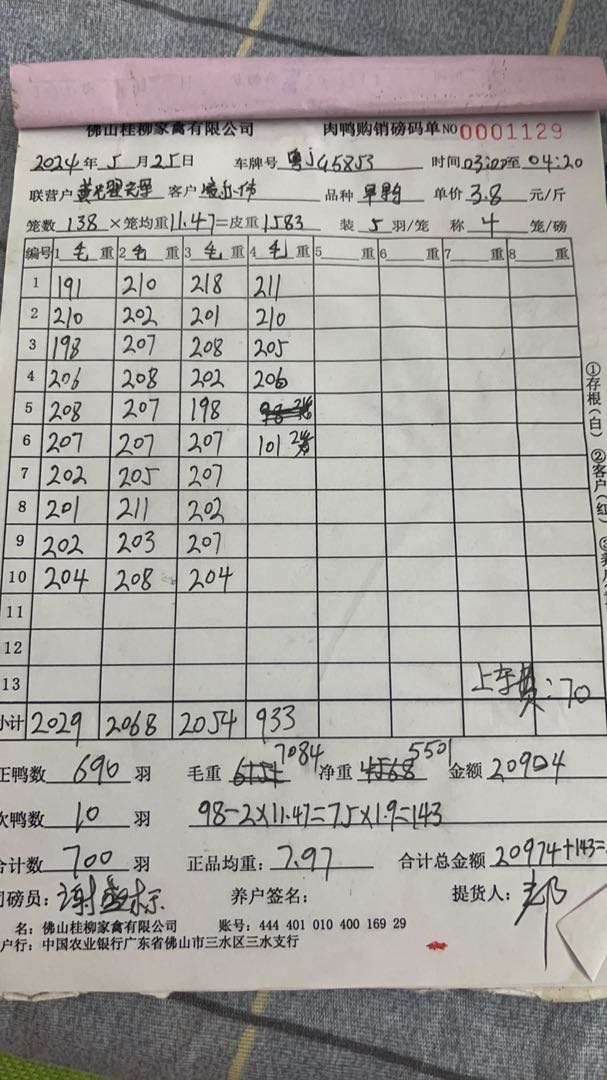 佛山桂柳家禽有限公司 肉鸭购销磅码单 NO 0001129
2024年5月25日 车牌号 粤J45853 时间03:00至04:20
联营户 客户 品种 单价3.8元/斤
笼数138×笼均重11.47=皮重1583 装5羽/笼 称4笼/磅
编号 1毛重 2毛重 3毛重 4毛重 5重 6重 7重 8重
1 191 210 218 211
2 210 202 201 210
3 198 207 208 205
4 206 208 202 206
5 208 207 198
6 207 207 207 101
7 202 205 207
8 201 211 202
9 202 203 207
10 204 208 204
11
12
13 上车费:70
小计 2029 2068 2054 933
正鸭数690羽 毛重7084 净重5501 金额20904
次鸭数10羽 98-2×11.47=75×1.9=143
合计数700羽 正品均重:7.97 合计总金额20974+143=
司磅员: 养户签名: 提货人:
名:佛山桂柳家禽有限公司 账号:444 401 010 400 169 29
户行:中国农业银行广东省佛山市三水区三水支行
①存根(白) ②客户(红)